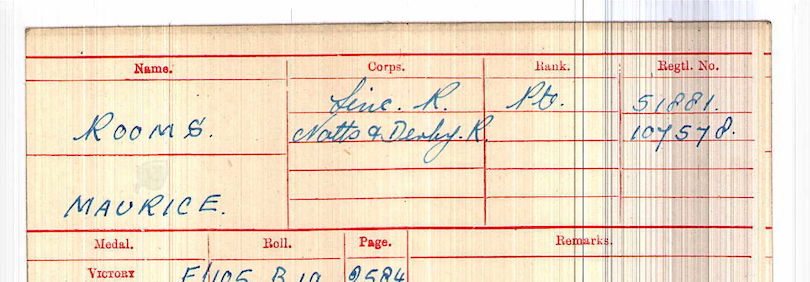 Name. Corps. Rank. Regtl. No.
Linc. R. Pte. 51881.
ROOMS. Notts & Derby. R. 107578.
MAURICE.
Medal. Roll. Page. Remarks.
VICTORY 2584